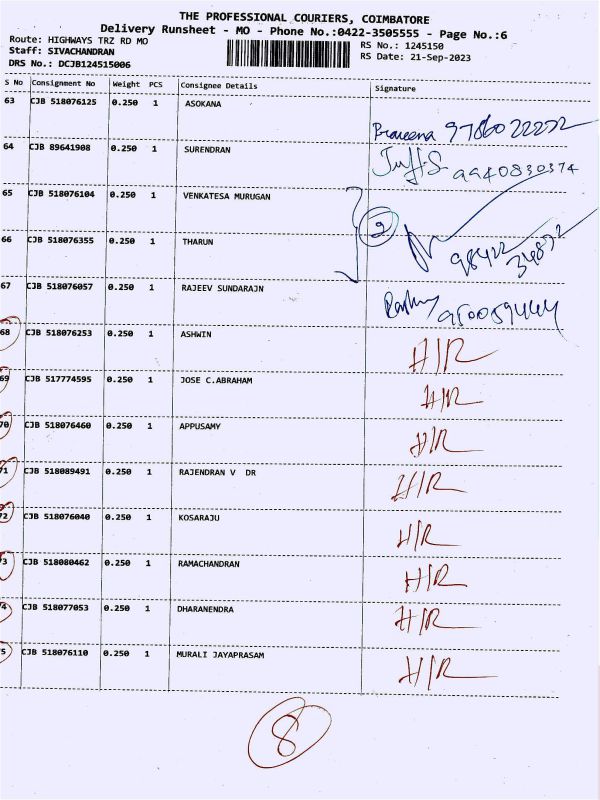 THE PROFESSIONAL COURIERS, COIMBATORE
Delivery Runsheet - MO - Phone No.:0422-3505555 - Page No.:6
Route: HIGHWAYS TRZ RD MO
RS No.: 1245150
Staff: SIVACHANDRAN
RS Date: 21-Sep-2023
DRS No.: DCJB124515006
S No Consignment No Weight PCS Consignee Details Signature
63 CJB 518076125 0.250 1 ASOKANA
Praveena 9786022272
64 CJB 89641908 0.250 1 SURENDRAN
9940830374
65 CJB 518076104 0.250 1 VENKATESA MURUGAN
2
66 CJB 518076355 0.250 1 THARUN
98422
34872
67 CJB 518076057 0.250 1 RAJEEV SUNDARAJN
950059444
68 CJB 518076253 0.250 1 ASHWIN H/R
69 CJB 517774595 0.250 1 JOSE C.ABRAHAM H/R
70 CJB 518076460 0.250 1 APPUSAMY H/R
71 CJB 518089491 0.250 1 RAJENDRAN V DR H/R
72 CJB 518076040 0.250 1 KOSARAJU H/R
73 CJB 518080462 0.250 1 RAMACHANDRAN H/R
74 CJB 518077053 0.250 1 DHARANENDRA H/R
75 CJB 518076110 0.250 1 MURALI JAYAPRASAM H/R
8